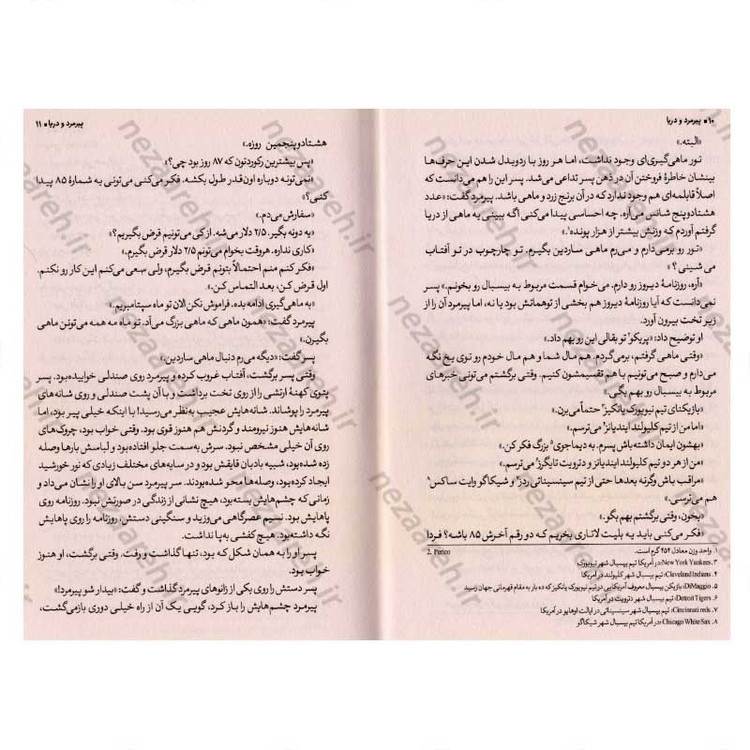 ۱۰ ■ پیرمرد و دریا
«البته.»
تور ماهی‌گیری‌ای وجود نداشت، اما هر روز با ردوبدل شدن این حرف‌ها
بینشان خاطرهٔ فروختن آن در ذهن پسر تداعی می‌شد. پسر این را هم می‌دانست که
اصلاً قابلمه‌ای هم وجود ندارد که در آن برنج زرد و ماهی باشد. پیرمرد گفت: «عدد
هشتادوپنج شانس می‌آره. چه احساسی پیدا می‌کنی اگه ببینی یه ماهی از دریا
گرفتم آوردم که وزنش بیشتر از هزار پونده.¹»
«تور رو برمی‌دارم و می‌رم ماهی ساردین بگیرم. تو چارچوب در تو آفتاب
می‌شینی؟»
«آره، روزنامهٔ دیروز رو دارم. می‌خوام قسمت مربوط به بیسبال رو بخونم.» پسر
نمی‌دانست که آیا روزنامهٔ دیروز هم بخشی از توهماتش بود یا نه، اما پیرمرد آن را از
زیر تخت بیرون آورد.
او توضیح داد: «پریکو² تو بقالی این رو بهم داد.»
«وقتی ماهی گرفتم، برمی‌گردم. هم مال شما و هم مال خودم رو توی یخ نگه
می‌دارم و صبح می‌تونیم با هم تقسیمشون کنیم. وقتی برگشتم می‌تونی خبرهای
مربوط به بیسبال رو بهم بگی.»
«بازیکنای تیم نیویورک یانکیز³ حتماً می‌برن.»
«اما من از تیم کلیولند ایندیانز⁴ می‌ترسم.»
«بهشون ایمان داشته‌باش پسرم. به دیماجوی⁵ بزرگ فکر کن.»
«من از هر دو تیم کلیولند ایندیانز و دترویت تایگرز⁶ می‌ترسم.»
«مراقب باش وگرنه بعدها حتی از تیم سینسیناتی ردز⁷ و شیکاگو وایت ساکس⁸
هم می‌ترسی.»
«بخون، وقتی برگشتم بهم بگو.»
«فکر می‌کنی باید یه بلیت لاتاری بخریم که دو رقم آخرش ۸۵ باشه؟ فردا
۱. واحد وزن معادل ۴۵۴ گرم است.
2. Perico
۳. New York Yankees: در آمریکا تیم بیسبال شهر نیویورک
۴. Cleveland Indians: تیم بیسبال شهر کلیولند در آمریکا
۵. DiMaggio: بازیکن بیسبال معروف آمریکایی در تیم نیویورک یانکیز که ده بار به مقام قهرمانی جهان رسید
۶. Detroit Tigers: تیم بیسبال شهر دترویت در آمریکا
۷. Cincinnati reds: تیم بیسبال شهر سینسیناتی در ایالت اوهایو در آمریکا
۸. Chicago White Sax: در آمریکا تیم بیسبال شهر شیکاگو
پیرمرد و دریا ■ ۱۱
هشتادوپنجمین روزه.»
«پس بیشترین رکوردتون که ۸۷ روز بود چی؟»
«نمی‌تونه دوباره اون‌قدر طول بکشه. فکر می‌کنی می‌تونی یه شمارهٔ ۸۵ پیدا
کنی؟»
«سفارش می‌دم.»
«یه دونه بگیر. ۲/۵ دلار می‌شه. از کی می‌تونیم قرض بگیریم؟»
«کاری نداره. هروقت بخوام می‌تونم ۲/۵ دلار قرض بگیرم.»
«فکر کنم منم احتمالاً بتونم قرض بگیرم، ولی سعی می‌کنم این کار رو نکنم.
اول قرض کن، بعد التماس کن.»
«به ماهی‌گیری ادامه بده. فراموش نکن الان تو ماه سپتامبریم.»
پیرمرد گفت: «همون ماهی که ماهی بزرگ می‌آد. تو ماه مه همه می‌تونن ماهی
بگیرن.»
پسر گفت: «دیگه می‌رم دنبال ماهی ساردین.»
وقتی پسر برگشت، آفتاب غروب کرده و پیرمرد روی صندلی خوابیده‌بود. پسر
پتوی کهنهٔ ارتشی را از روی تخت برداشت و با آن پشت صندلی و روی شانه‌های
پیرمرد را پوشاند. شانه‌هایش عجیب به‌نظر می‌رسید! با اینکه خیلی پیر بود، اما
شانه‌هایش هنوز نیرومند و گردنش هم هنوز قوی بود. وقتی خواب بود، چروک‌های
روی آن خیلی مشخص نبود. سرش به‌سمت جلو افتاده‌بود و لباسش بارها وصله
زده شده‌بود، شبیه بادبان قایقش بود و در سایه‌های مختلف زیادی که نور خورشید
ایجاد کرده‌بود، وصله‌ها محو شده‌بودند. سر پیرمرد سن بالای او را نشان می‌داد و
زمانی که چشم‌هایش بسته‌بود، هیچ نشانی از زندگی در صورتش نبود. روزنامه روی
پاهایش بود. نسیم عصرگاهی می‌وزید و سنگینی دستش، روزنامه را روی پاهایش
نگه داشته‌بود. هیچ کفشی به پا نداشت.
پسر او را به همان شکل که بود، تنها گذاشت و رفت. وقتی برگشت، او هنوز
خواب بود.
پسر دستش را روی یکی از زانوهای پیرمرد گذاشت و گفت: «بیدار شو پیرمرد!»
پیرمرد چشم‌هایش را باز کرد، گویی یک آن از راه خیلی دوری بازمی‌گشت،
nezaareh.ir